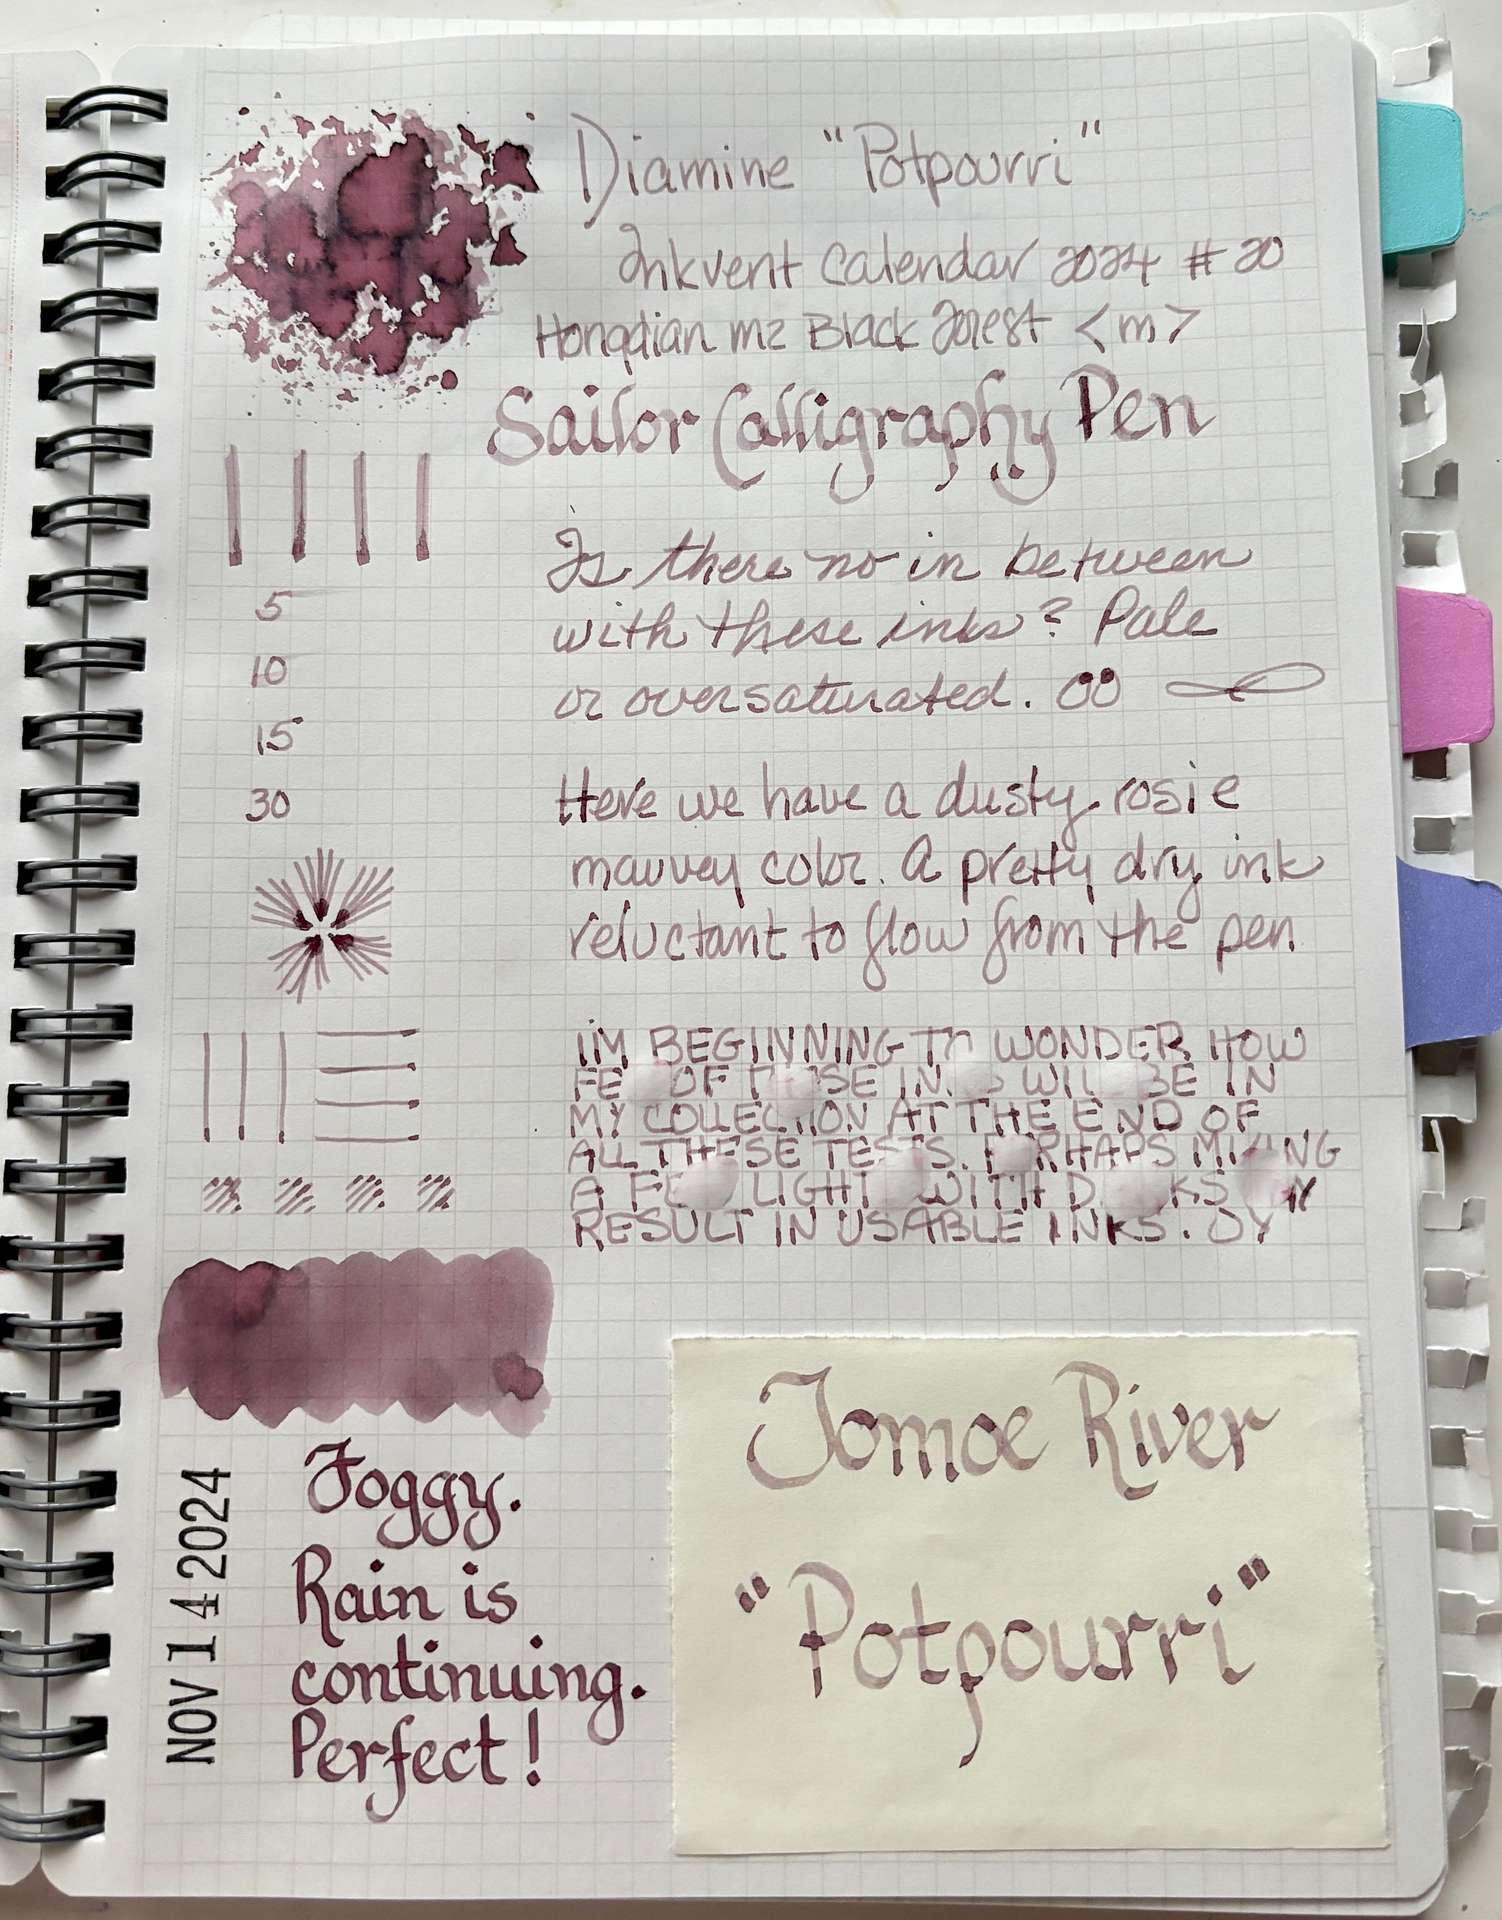 Diamine "Potpourri"
Inkvent Calendar 2024 # 20
Hongdian M2 Black Forest <m>
Sailor Calligraphy Pen
5
10
15
30
Is there no in between
with these inks? Pale
or oversaturated.
Here we have a dusty rosie
mauvey color. A pretty dry ink
reluctant to flow from the pen
I'M BEGINNING TO WONDER HOW
FEW OF THESE INKS WILL BE IN
MY COLLECTION AT THE END OF
ALL THESE TESTS. PERHAPS MIXING
A FEW LIGHT WITH DARKS MAY
RESULT IN USABLE INKS. OY
NOV 14 2024
Foggy.
Rain is
continuing.
Perfect!
Tomoe River
"Potpourri"